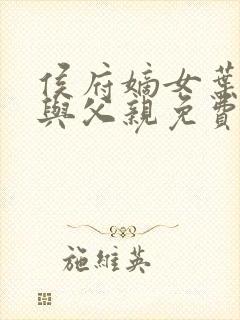 侯府嫡女葉
與父親免費
施維英